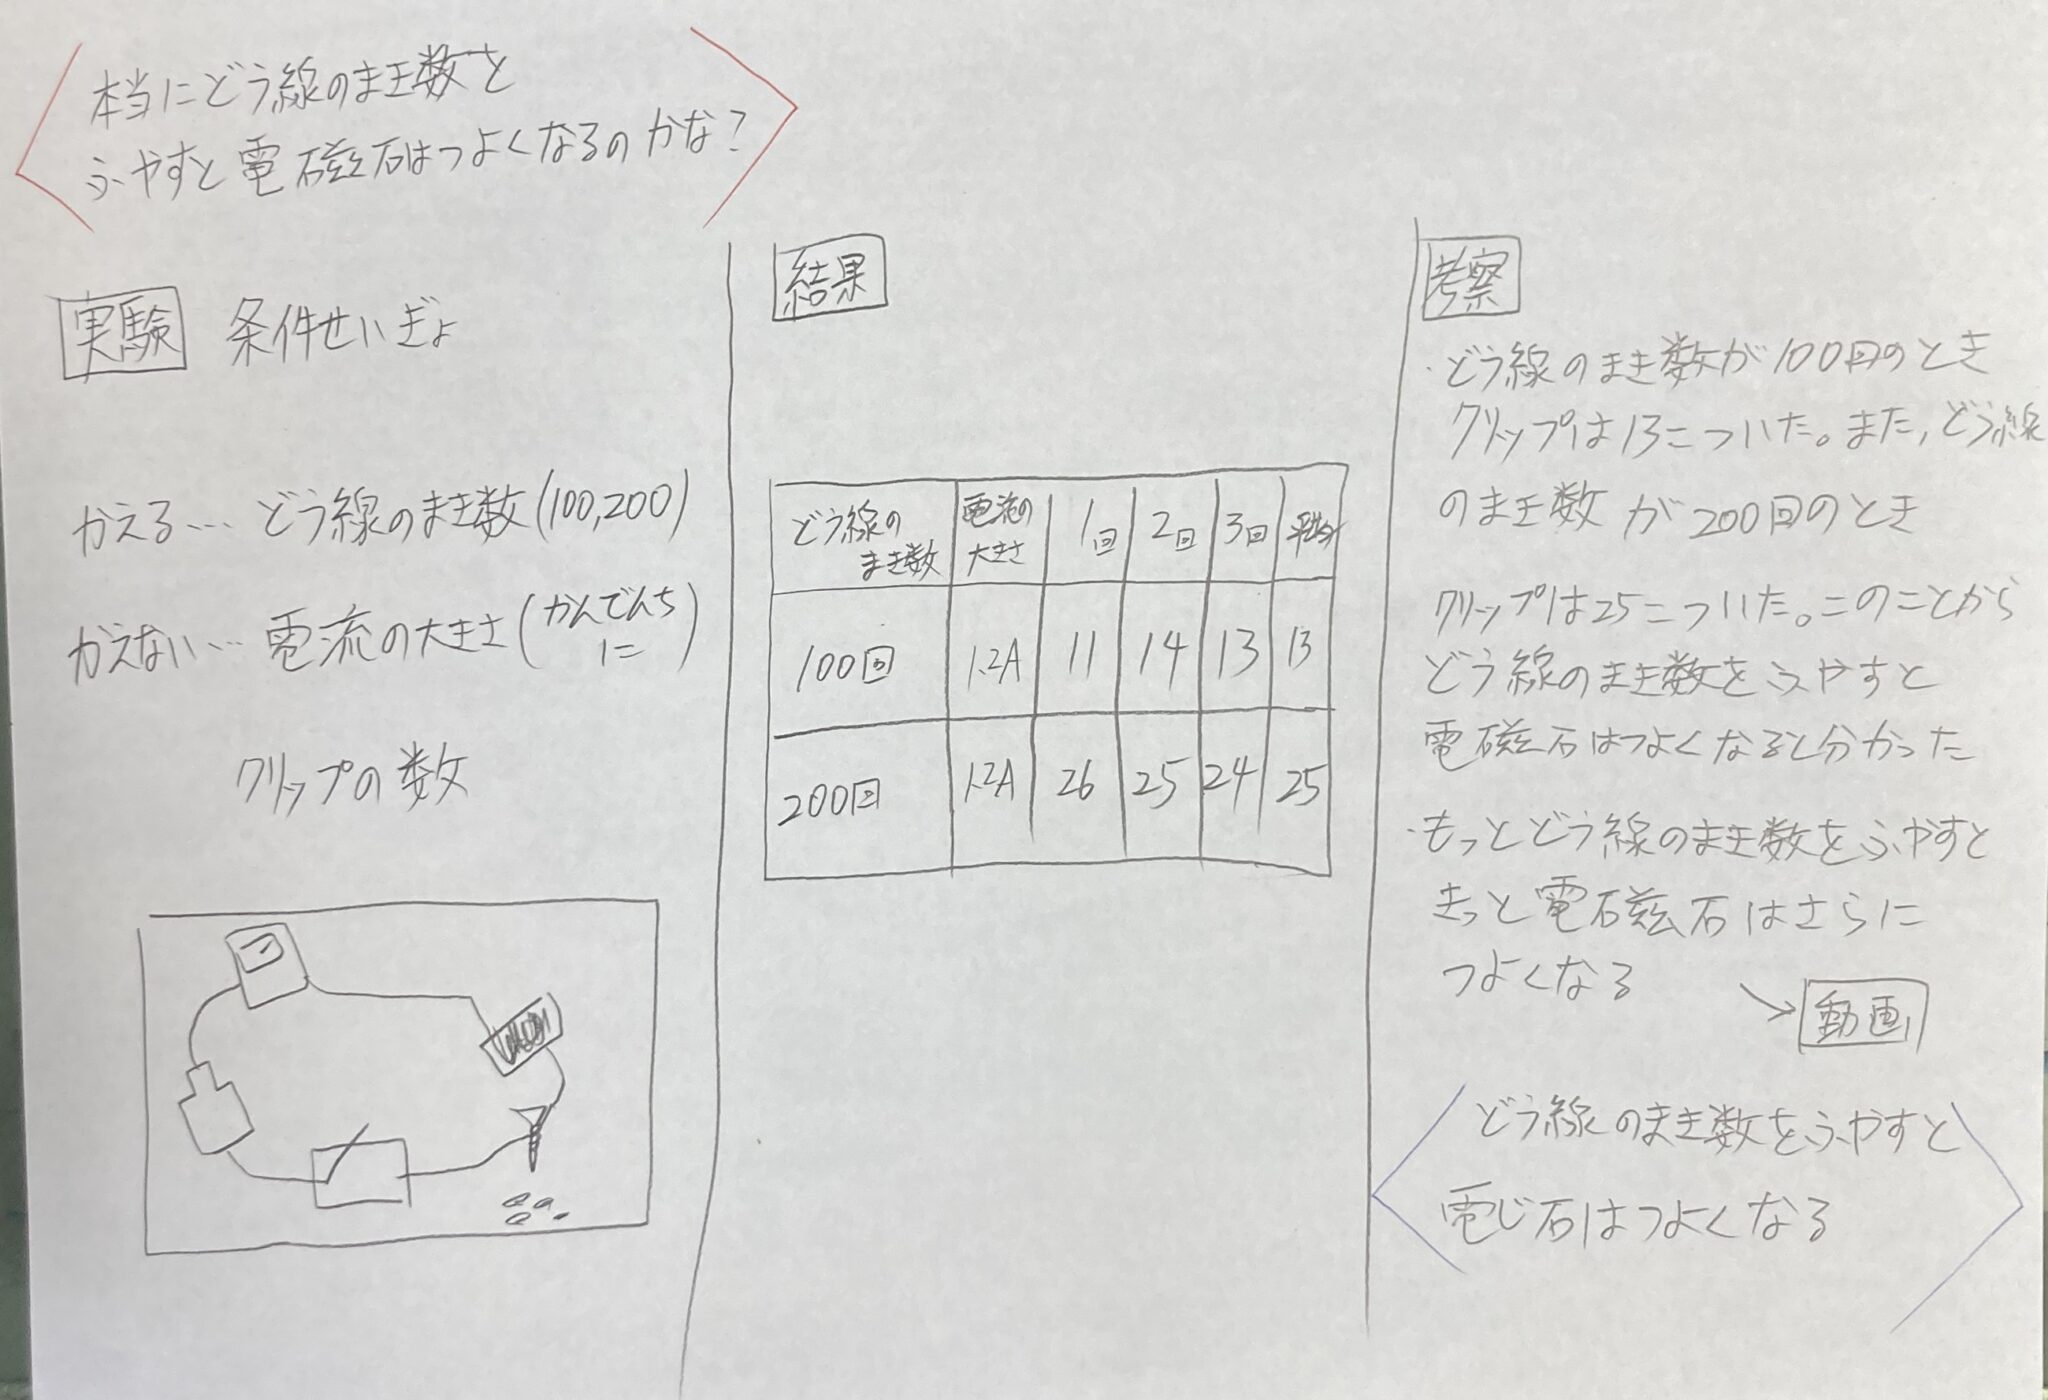 本当にどう線のまき数と
ふやすと電磁石はつよくなるのかな？
実験 条件せいぎょ
かえる… どう線のまき数(100,200)
かえない… 電流の大きさ(かんでんち
に)
クリップの数
結果
どう線の
まき数
電流の
大きさ
1回 2回 3回 平均
100回 1.2A 11 14 13 13
200回 1.2A 26 25 24 25
考察
・どう線のまき数が100回のとき
クリップは13こついた。また,どう線
のまき数が200回のとき
クリップは25こついた。このことから
どう線のまき数をふやすと
電磁石はつよくなると分かった
・もっとどう線のまき数をふやすと
きっと電磁石はさらに
つよくなる
→動画
どう線のまき数をふやすと
電じ石はつよくなる